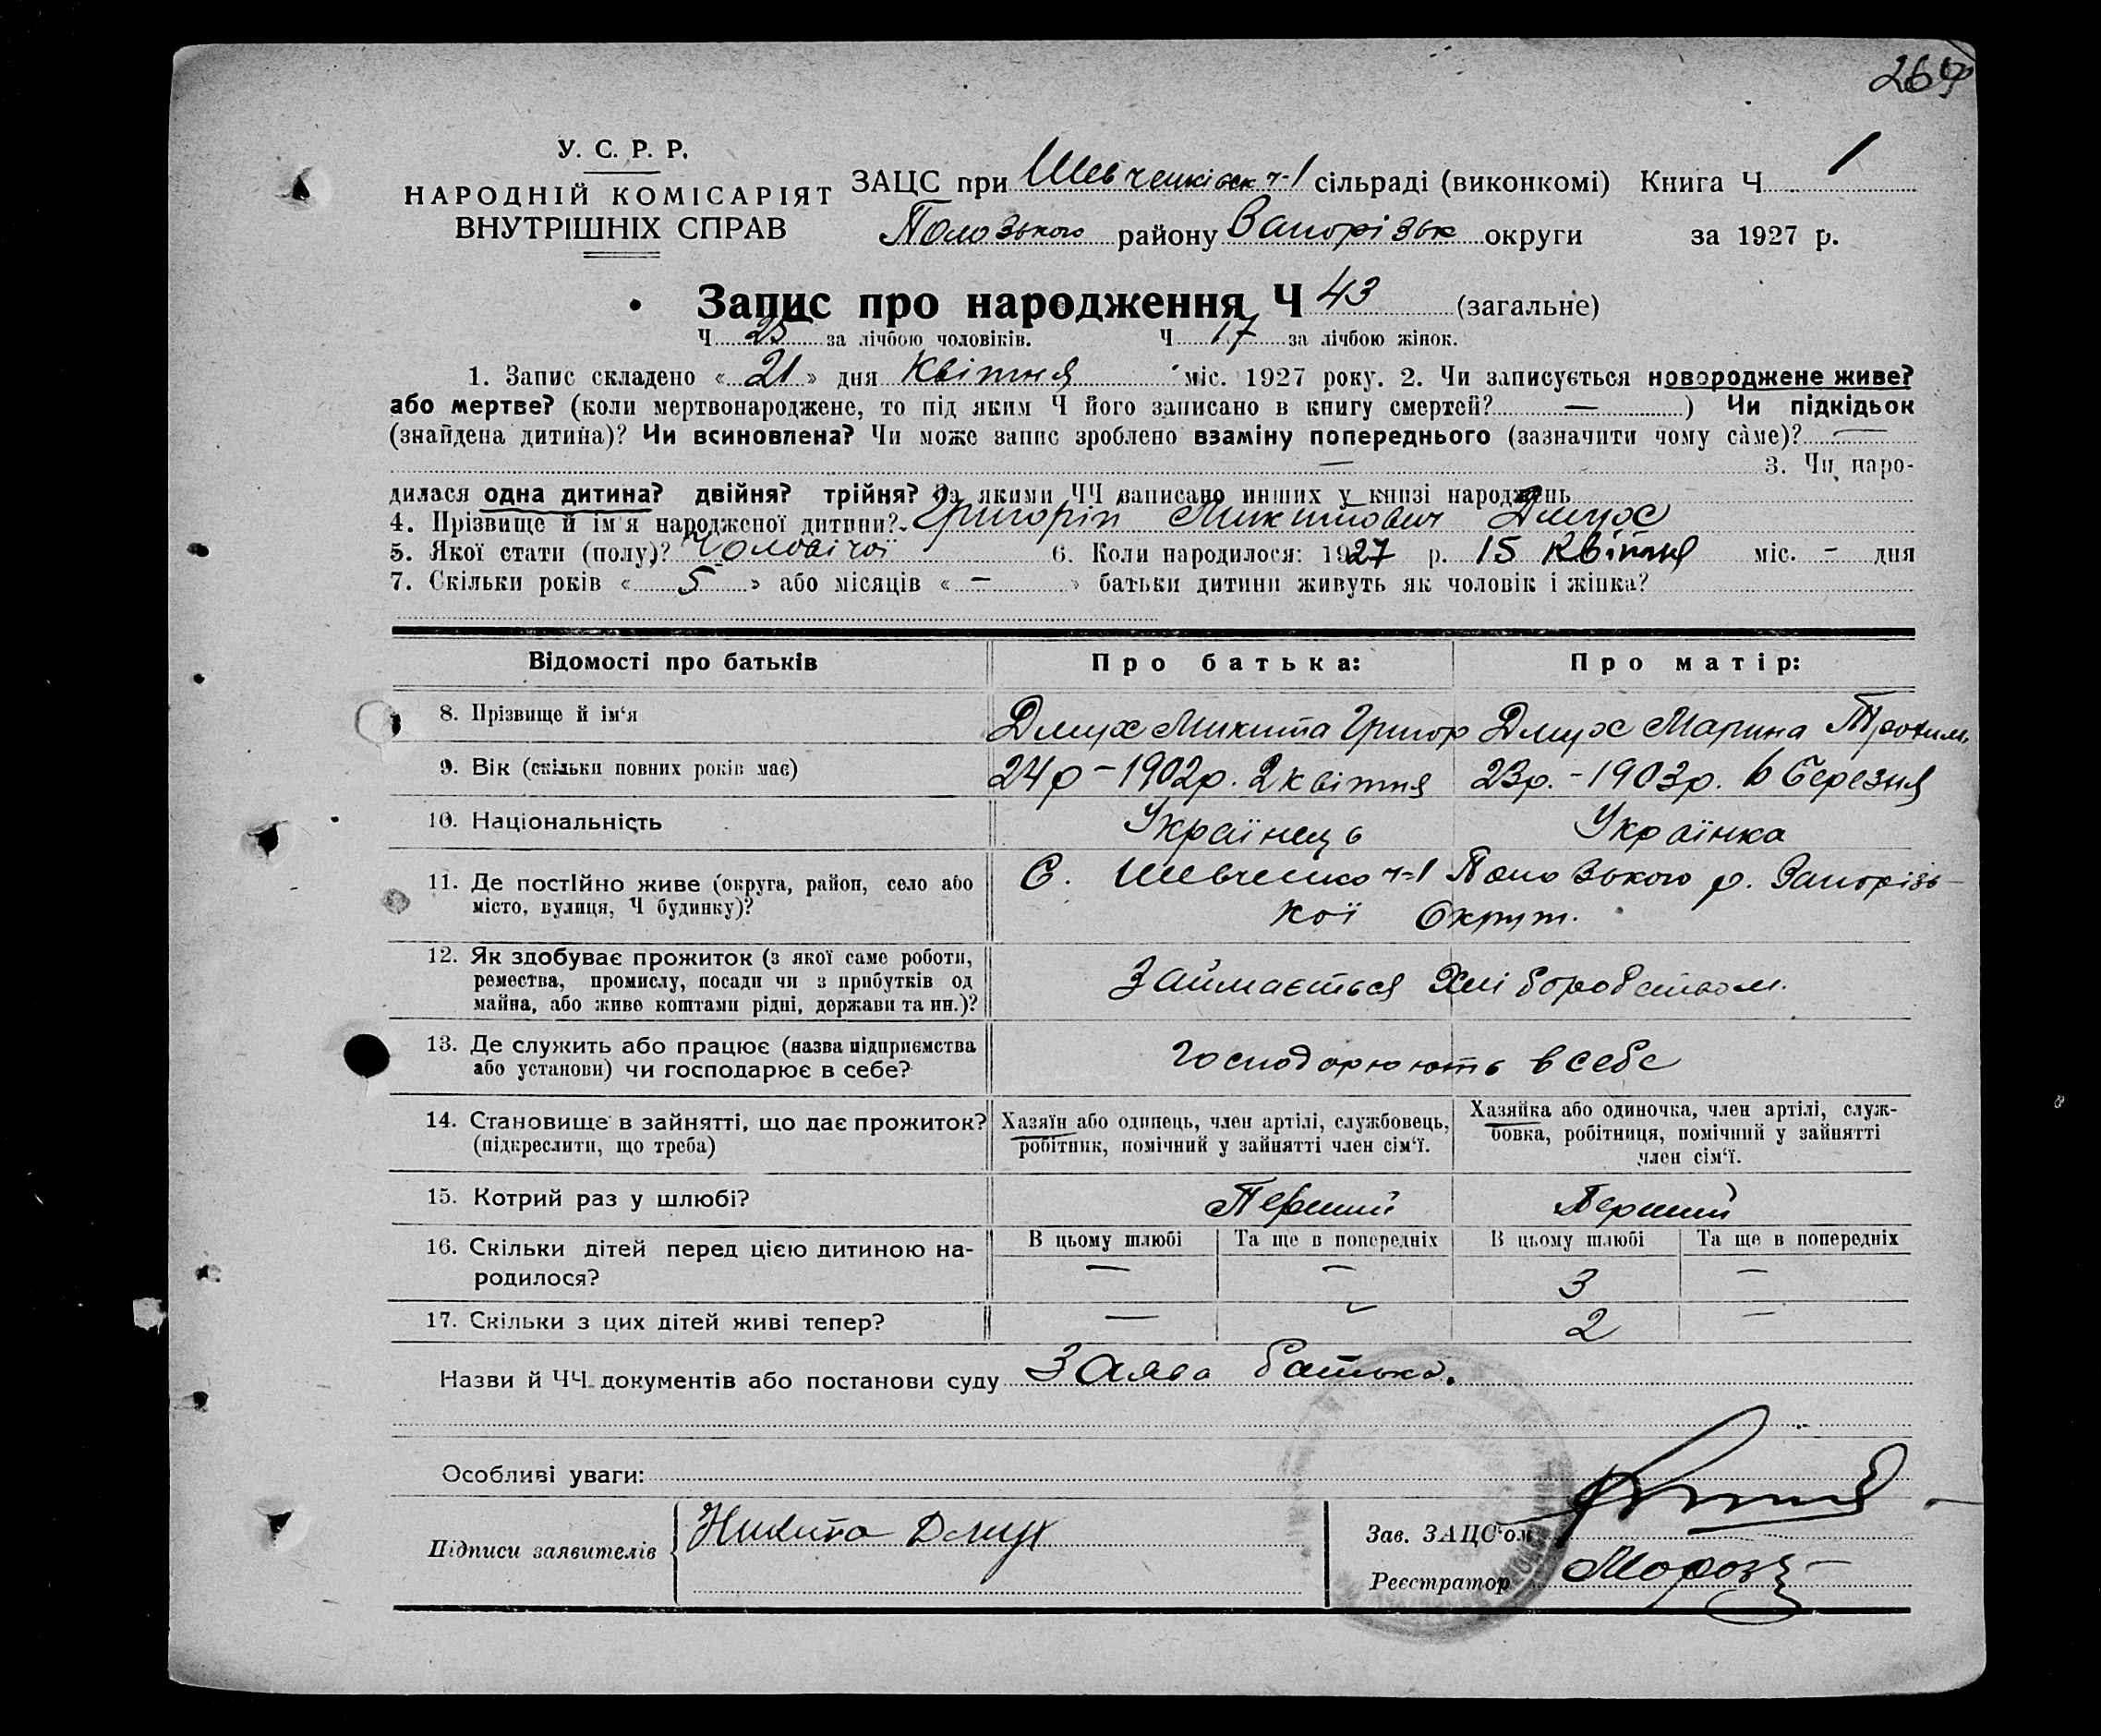 У. С. Р. Р.
НАРОДНІЙ КОМІСАРІЯТ
ВНУТРІШНІХ СПРАВ
ЗАЦС при Шевченківск ч-1 сільраді (виконкомі) Книга Ч 1
Положського району Запорізьк округи за 1927 р.
Запис про народження Ч 43 (загальне)
Ч 25 за лічбою чоловіків. Ч 17 за лічбою жінок.
1. Запис складено « 21 » дня Квітня міс. 1927 року. 2. Чи записується новороджене живе?
або мертве? (коли мертвонароджене, то під яким Ч його записано в книгу смертей? — ) Чи підкідьок
(знайдена дитина)? Чи всиновлена? Чи може запис зроблено взаміну попереднього (зазначити чому сàме)? —
— 3. Чи наро-
дилася одна дитина? двійня? трійня? За якими ЧЧ записано инших у книзі народжень
4. Прізвище й ім'я народженої дитини? Григорій Микитович Дмух
5. Якої стати (полу)? Чоловічої 6. Коли народилося: 1927 р. 15 Квітня міс. - дня
7. Скільки років « 5 » або місяців « - » батьки дитини живуть як чоловік і жінка?
Відомості про батьків Про батька: Про матір:
8. Прізвище й ім‘я Дмух Микита Григор Дмух Марина Трохим.
9. Вік (скільки повних років має) 24р - 1902р. 2 квітня 23р. - 1903р. 6 березня
10. Національність Українець Українка
11. Де постійно живе (округа, район, село або
місто, вулиця, Ч будинку)?
С. Шевченко ч-1 Положського р. Запорізь-
кої Округи.
12. Як здобуває прожиток (з якої саме роботи,
ремества, промислу, посади чи з прибутків од
майна, або живе коштами рідні, держави та ин.)?
Займається Хліборобством.
13. Де служить або працює (назва підприємства
або установи) чи господарює в себе?
Господорюють в себе
14. Становище в зайнятті, що дає прожиток?
(підкреслити, що треба)
Хазяїн або одинець, член артілі, службовець,
робітник, помічний у зайнятті член сім‘ї.
Хазяйка або одиночка, член артілі, служ-
бовка, робітниця, помічний у зайнятті
член сім‘ї.
15. Котрий раз у шлюбі? Перший Перший
16. Скільки дітей перед цією дитиною на-
родилося?
В цьому шлюбі Та ще в попередніх В цьому шлюбі Та ще в попередніх
— — 3 —
17. Скільки з цих дітей живі тепер? — — 2 —
Назви й ЧЧ документів або постанови суду Заява батька.
Особливі уваги:
Підписи заявителів Никита Дмух
Зав. ЗАЦС‘ом
Реєстратор Мороз